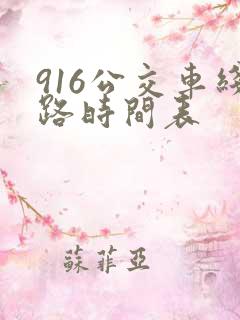 916公交車綫
路時間表
蘇菲亞